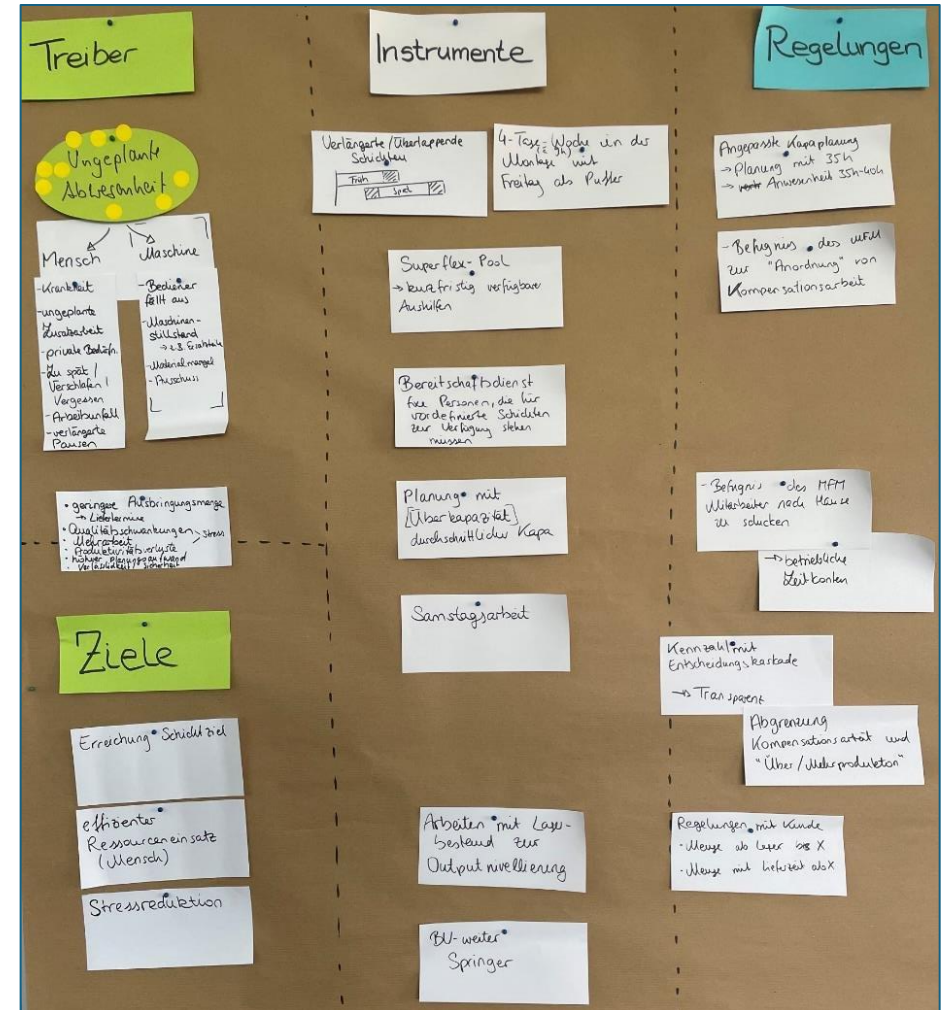 Treiber
Ungeplante
Abwesenheit
Mensch
Maschine
-Krankheit
-ungeplante
Zusatzarbeit
-private Bedürfn.
-Zu spät /
Verschlafen /
Vergessen
-Arbeitsunfall
-verlängerte
Pausen
-Bediener
fällt aus
-Maschinen-
stillstand
→ z.B. Ersatzteile
-Materialmangel
-Ausschuss
• geringere Ausbringungsmenge
→ Liefertermine
• Qualitätsschwankungen
• Mehrarbeit
> Stress
• Produktivitätsverluste
• höherer Planungsaufwand
• Verlässlichkeit / Sicherheit
Ziele
Erreichung Schichtziel
effizienter
Ressourceneinsatz
(Mensch)
Stressreduktion
Instrumente
Verlängerte/Überlappende
Schichten
Früh
Spät
4-Tage-Woche in der
(à 9h)
Montage mit
Freitag als Puffer
Superflex-Pool
→ kurzfristig verfügbare
Aushilfen
Bereitschaftsdienst
Personen, die für
vordefinierte Schichten
zur Verfügung stehen
müssen
Planung mit
[Überkapazität]
durchschnittlicher Kapa
Samstagsarbeit
Arbeiten mit Lager-
bestand zur
Outputnivellierung
BU-weiter
Springer
Regelungen
Angepasste Kapaplanung
→ Planung mit 35h
→ Anwesenheit 35h-40h
- Befugnis des MFM
zur "Anordnung" von
Kompensationsarbeit
- Befugnis des MFM
Mitarbeiter nach Hause
zu schicken
→ betriebliche
Zeitkonten
Kennzahl mit
Entscheidungskaskade
→ Transparent
Abgrenzung
Kompensationsarbeit und
"Über/Mehrproduktion"
Regelungen mit Kunde
-Menge ab Lager bis X
-Menge mit Lieferzeit ab X